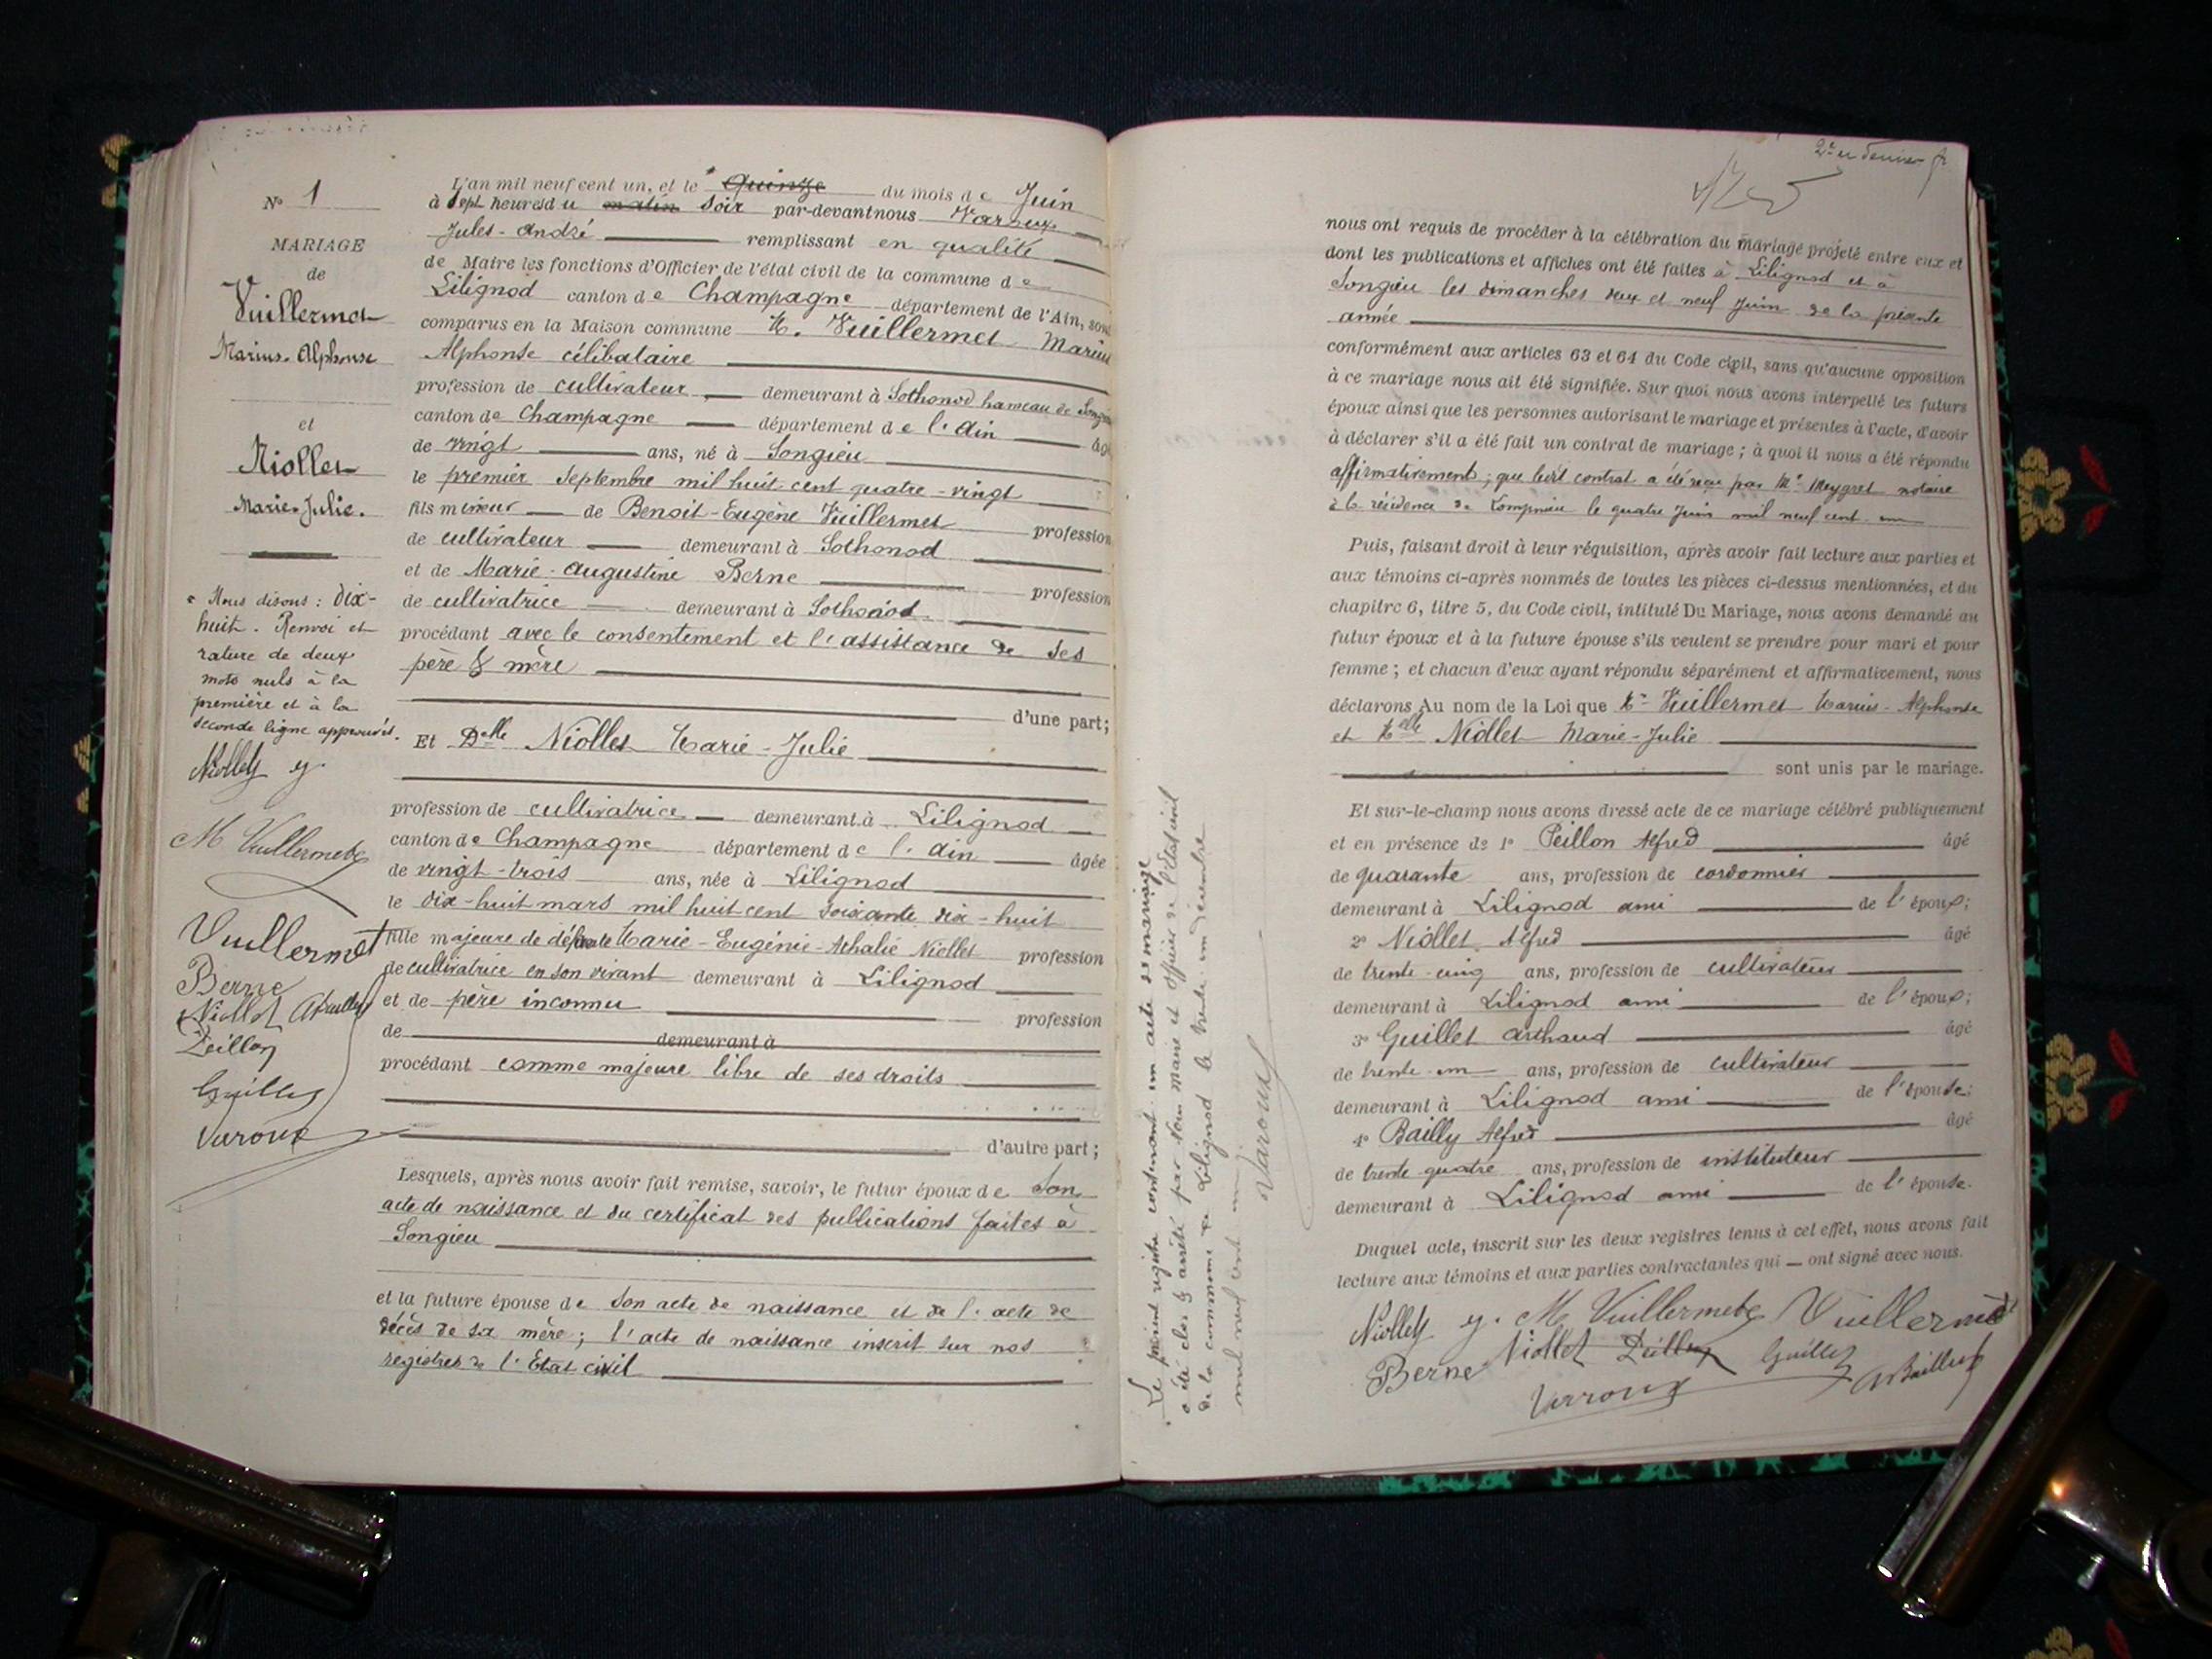 N° 1
MARIAGE
de
Vuillermet
Marius-Alphonse
et
Niollet
Marie-Julie.
* Nous disons : dix-
huit. Renvoi et
rature de deux
mots nuls à la
première et à la
seconde ligne approuvés.
Niollet
M Vuillermet
Vuillermet
Berne
Niollet ABailly
Peillon
Guillet
Varoux
L'an mil neuf cent un, et le * Quinze du mois de Juin
à Sept heures du matin soir par-devant nous Varoux
Jules-André remplissant en qualité
de Maire les fonctions d'Officier de l'état civil de la commune de
Lilignod canton de Champagne département de l'Ain, sont
comparus en la Maison commune M. Vuillermet Marius
Alphonse célibataire
profession de cultivateur demeurant à Sothonod hameau de Songieu
canton de Champagne département de l'Ain âgé
de vingt ans, né à Songieu
le premier Septembre mil huit cent quatre-vingt
fils mineur de Benoit-Eugène Vuillermet profession
de cultivateur demeurant à Sothonod
et de Marie-Augustine Berne profession
de cultivatrice demeurant à Sothonod
procédant avec le consentement et l'assistance de ses
père & mère
d'une part;
Et Delle Niollet Marie-Julie
profession de cultivatrice demeurant à Lilignod
canton de Champagne département de l'Ain âgée
de vingt-trois ans, née à Lilignod
le dix-huit mars mil huit cent soixante dix-huit
fille majeure de défunte Marie-Eugénie-Athalie Niollet profession
de cultivatrice en son vivant demeurant à Lilignod
et de père inconnu profession
de demeurant à
procédant comme majeure libre de ses droits
d'autre part;
Lesquels, après nous avoir fait remise, savoir, le futur époux de Son
acte de naissance et du certificat des publications faites à
Songieu
et la future épouse de Son acte de naissance et de l'acte de
décès de sa mère; l'acte de naissance inscrit sur nos
registres de l'Etat civil
Le présent registre contenant un acte de mariage
a été clos & arrêté par Nous Maire et Officier de l'Etat civil
de la commune de Lilignod le trente un décembre
mil neuf cent un
Varoux
nous ont requis de procéder à la célébration du mariage projeté entre eux et
dont les publications et affiches ont été faites à Lilignod et à
Songieu les dimanches deux et neuf Juin de la présente
année
conformément aux articles 63 et 64 du Code cipil, sans qu'aucune opposition
à ce mariage nous ait été signifiée. Sur quoi nous avons interpellé les futurs
époux ainsi que les personnes autorisant le mariage et présentes à l'acte, d'avoir
à déclarer s'il a été fait un contrat de mariage; à quoi il nous a été répondu
affirmativement; que leur contrat a été reçu par Me Meygret notaire
à la résidence de Lompnieu le quatre Juin mil neuf cent un
Puis, faisant droit à leur réquisition, après avoir fait lecture aux parties et
aux témoins ci-après nommés de toutes les pièces ci-dessus mentionnées, et du
chapitre 6, titre 5, du Code civil, intitulé Du Mariage, nous avons demandé au
futur époux et à la future épouse s'ils veulent se prendre pour mari et pour
femme; et chacun d'eux ayant répondu séparément et affirmativement, nous
déclarons Au nom de la Loi que Mr Vuillermet Marius-Alphonse
et Melle Niollet Marie-Julie
sont unis par le mariage.
Et sur-le-champ nous avons dressé acte de ce mariage célébré publiquement
et en présence de 1° Peillon Alfred âgé
de quarante ans, profession de cordonnier
demeurant à Lilignod ami de l'époux;
2° Niollet Alfred âgé
de trente-cinq ans, profession de cultivateur
demeurant à Lilignod ami de l'époux;
3° Guillet Arthaud âgé
de trente-un ans, profession de cultivateur
demeurant à Lilignod ami de l'épouse;
4° Bailly Alfred âgé
de trente quatre ans, profession de instituteur
demeurant à Lilignod ami de l'épouse.
Duquel acte, inscrit sur les deux registres tenus à cet effet, nous avons fait
lecture aux témoins et aux parties contractantes qui — ont signé avec nous.
Niollet M Vuillermet Vuillermet
Berne Niollet Peillon Guillet ABailly
Varoux